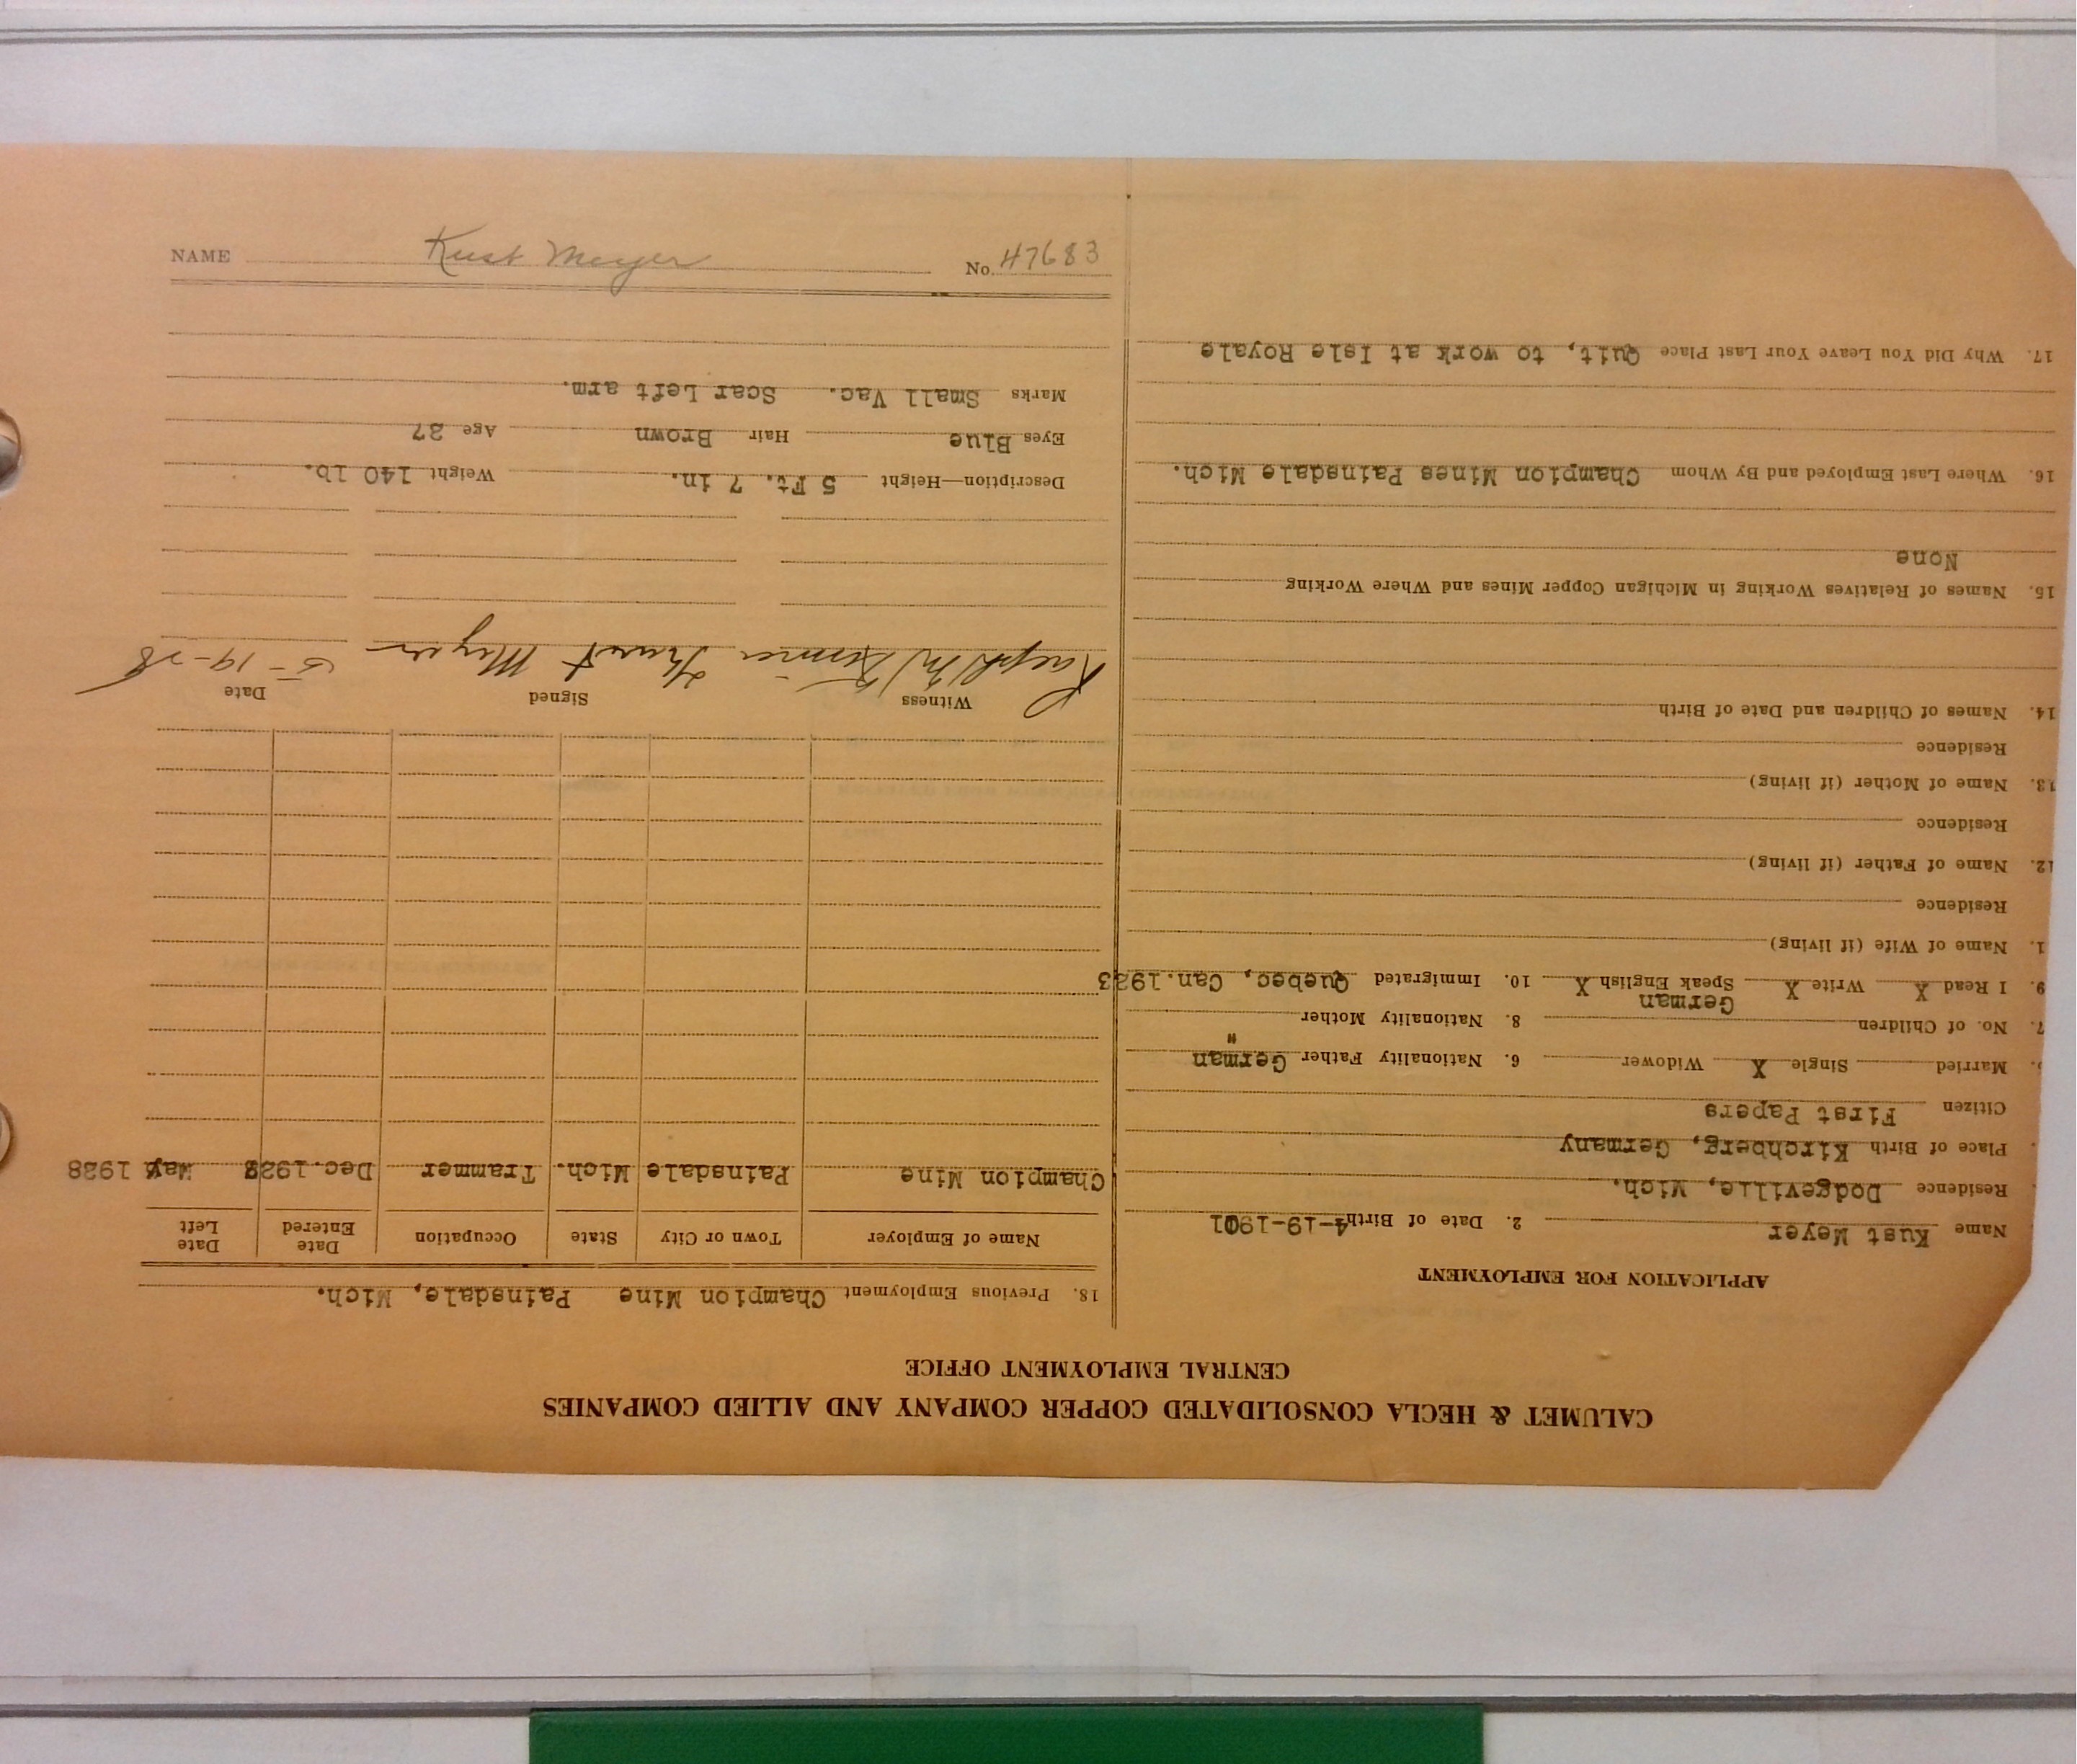 CALUMET & HECLA CONSOLIDATED COPPER COMPANY AND ALLIED COMPANIES
CENTRAL EMPLOYMENT OFFICE
APPLICATION FOR EMPLOYMENT
Name Kust Meyer 2. Date of Birth 4-19-1901
Residence Dodgeville, Mich.
Place of Birth Kirchberg, Germany
Citizen First Papers
Married Single X Widower 6. Nationality Father German
7. No. of Children 8. Nationality Mother "
German
9. I Read X Write X Speak English X 10. Immigrated Quebec, Can. 1923
1. Name of Wife (if living)
Residence
12. Name of Father (if living)
Residence
13. Name of Mother (if living)
Residence
14. Names of Children and Date of Birth
15. Names of Relatives Working in Michigan Copper Mines and Where Working
None
16. Where Last Employed and By Whom Champion Mines Painsdale Mich.
17. Why Did You Leave Your Last Place Quit, to work at Isle Royale
18. Previous Employment Champion Mine Painsdale, Mich.
Name of Employer Town or City State Occupation Date Entered Date Left
Champion Mine Painsdale Mich. Trammer Dec. May 1928
Witness Signed Date
Ralph Meyer 5-19-28
Description—Height 5 Ft. 7 in. Weight 140 lb.
Eyes Blue Hair Brown Age 27
Marks Small Vac. Scar Left arm.
NAME Kust Meyer No. 47683